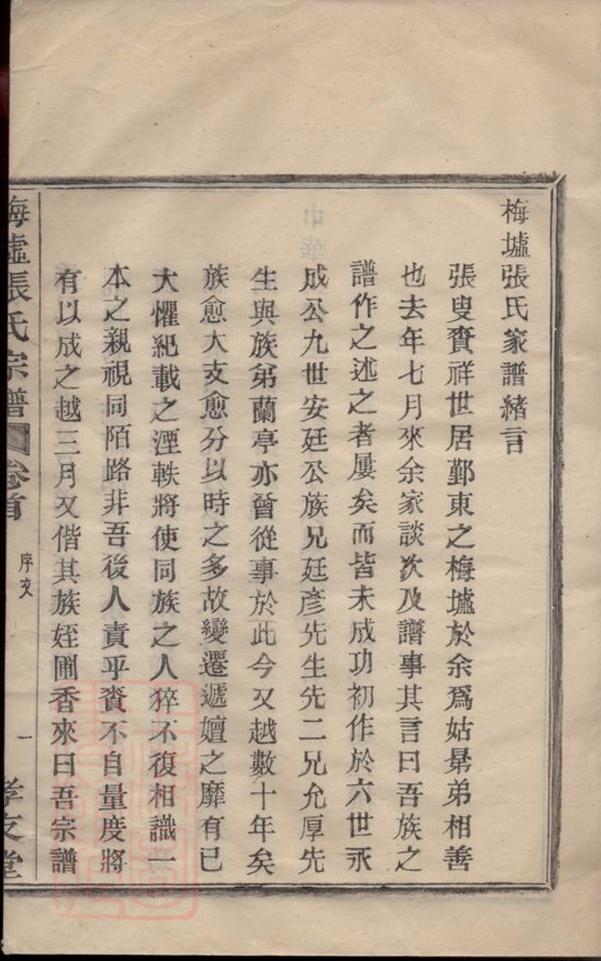 梅墟張氏家譜緒言
張叟賚祥世居鄞東之梅墟於余爲姑舅弟相善
也去年七月來余家談次及譜事其言曰吾族之
譜作之述之者屢矣而皆未成功初作於六世永
成公九世安廷公族兄廷彥先生先二兄允厚先
生與族弟蘭亭亦曾從事於此今又越數十年矣
族愈大支愈分以時之多故變遷遞嬗之靡有已
大懼紀載之湮軼將使同族之人猝不復相識一
本之親視同陌路非吾後人責乎賚不自量度將
有以成之越三月又偕其族姪圃香來曰吾宗譜
梅墟張氏宗譜 卷首 序文 一 孝友堂